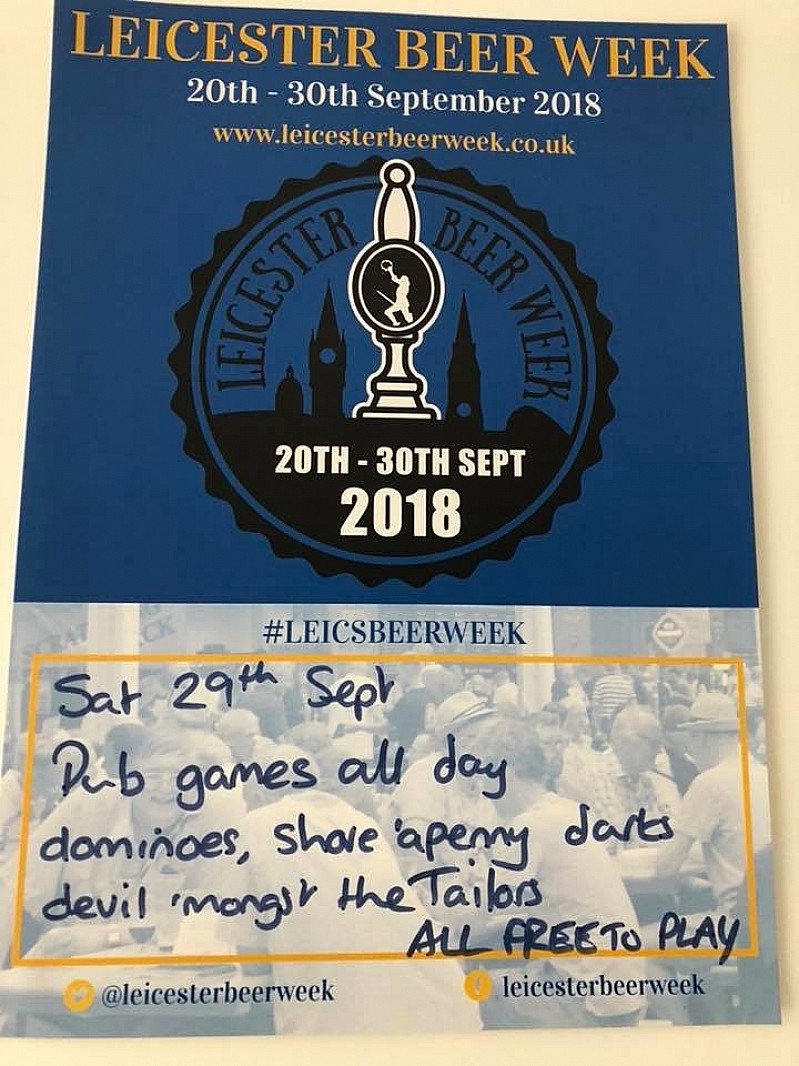 LEICESTER BEER WEEK
20th - 30th September 2018
www.leicesterbeerweek.co.uk
LEICESTER BEER WEEK
20TH - 30TH SEPT
2018
#LEICSBEERWEEK
Sat 29th Sept
Pub games all day
dominoes, shove 'apenny darts
devil 'mongst the Tailors
ALL FREE TO PLAY
@leicesterbeerweek
leicesterbeerweek